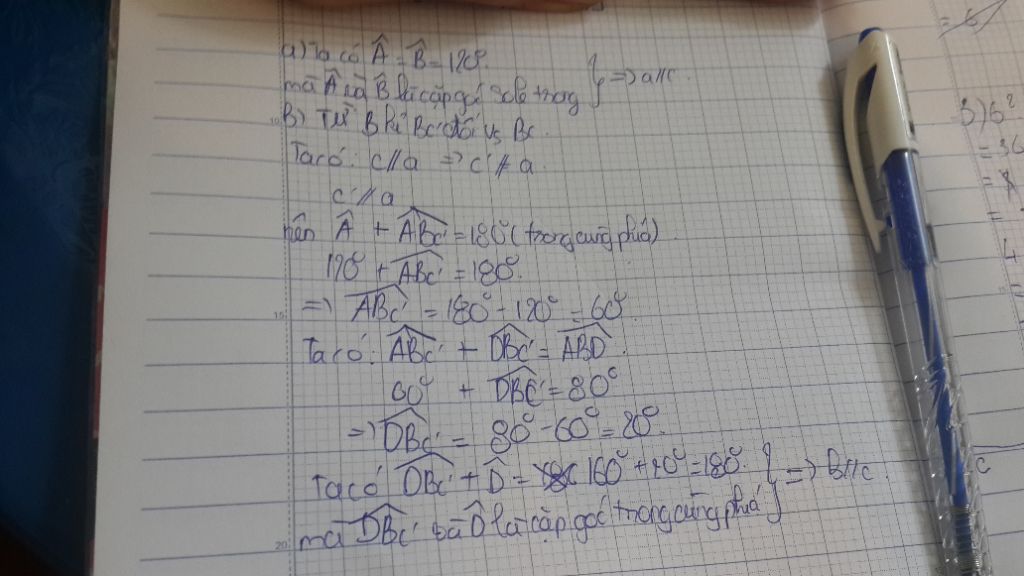 a) Ta có Â = B̂ = 120°
mà Â và B̂ là cặp góc so le trong } => a//c.
b) Từ B kẻ Bc' đối vs Bc.
Ta có: c//a => c' // a.
c' // a
nên Â + ABc' = 180° (trong cùng phía)
120° + ABc' = 180°.
=> ABc' = 180° - 120° = 60°
Ta có: ABc' + DBc' = ABD.
60° + DBc' = 80°
=> DBc' = 80° - 60° = 20°.
Ta có DBc' + D̂ = 160° + 20° = 180°. } => b//c.
mà DBc' và D̂ là cặp góc trong cùng phía
= 6
3) 6²
= 36
=
=
4
=
c